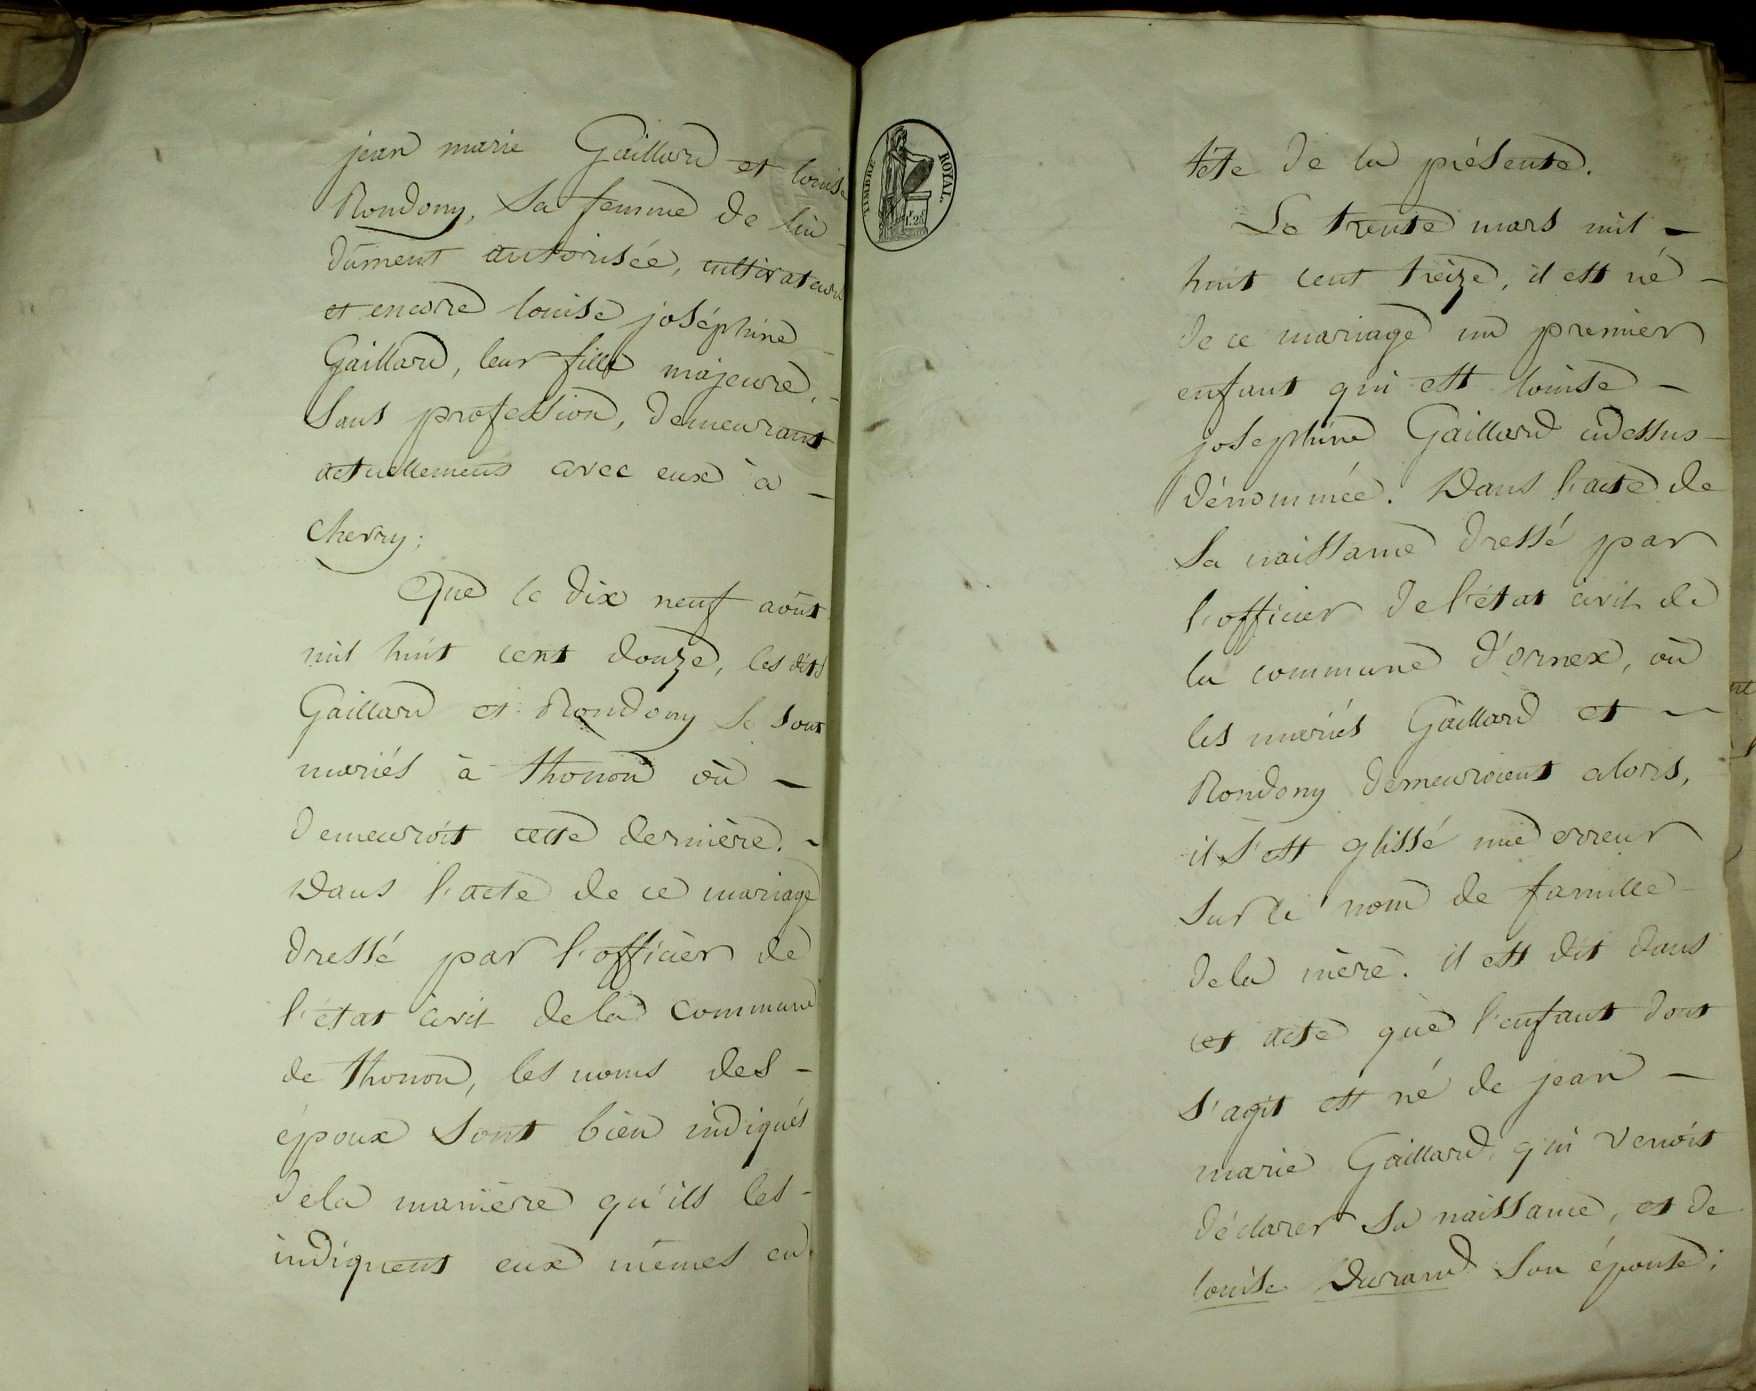 jean marie Gaillard et louise
Rondony, sa femme de lui
dûment autorisée, cultivateurs
et encore louise joséphine
Gaillard, leur fille majeure,
sans profession, demeurant
actuellement avec eux à –
Chevry;
Que le dix neuf août
mil huit cent douze, les dits
Gaillard et Rondony se sont
mariés à thonon où –
demeuroit cette dernière. –
Dans l'acte de ce mariage
dressé par l'officier de
l'état civil dela commune
de thonon, les noms des –
époux sont bien indiqués
dela manière qu'ils les –
indiquent eux mêmes en
TIMBRE ROYAL
tête de la présente.
Le trente mars mil –
huit cent treize, il est né –
de ce mariage un premier
enfant qui est louise –
josephine Gaillard cidessus –
dénommée. Dans l'acte de
sa naissance dressé par
l'officier de l'état civil de
la commune d'ornex, où
les mariés Gaillard et –
Rondony demeuroient alors,
il s'est glissé une erreur
sur le nom de famille –
dela mère. il est dit dans
cet acte que l'enfant dont
s'agit est né de jean –
marie Gaillard, qui venoit
déclarer sa naissance, et de
louise Durand son épouse;